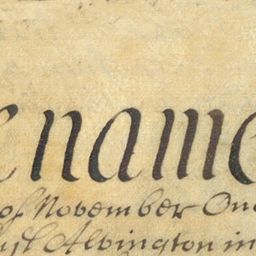 name
of November One
Alvington in